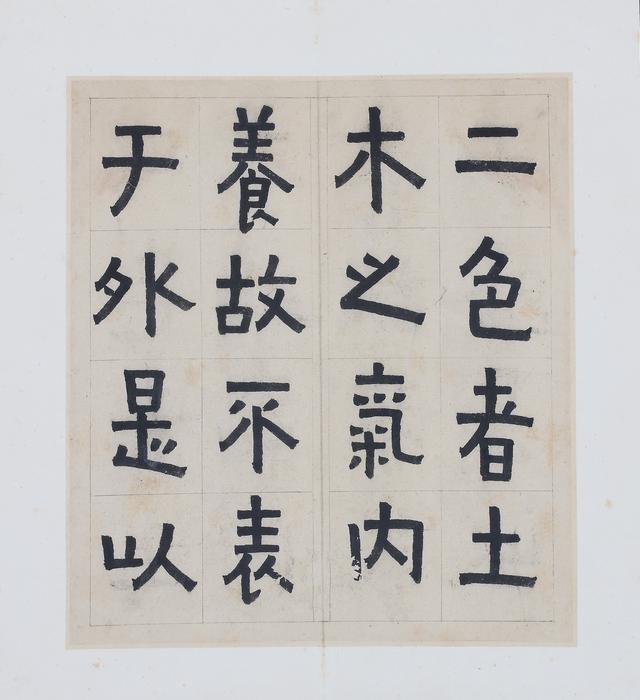 二色者土
木之氣内
養故不表
于外是以